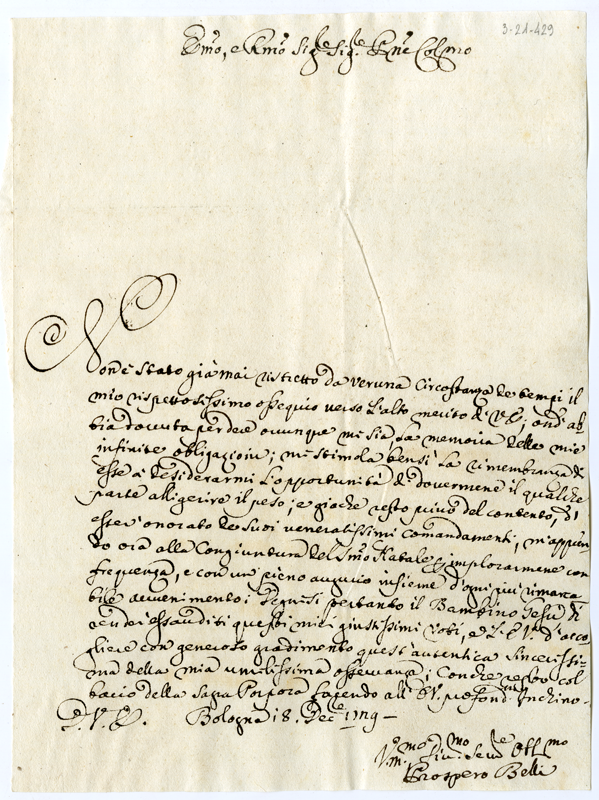 3-21-429
Emo, e Rmo Sigre Sigre Pne Colmo
Non è stato già mai ristretto da veruna Circostanza de tempi il
mio rispettosissimo ossequio verso l'alto merito di V.E., ond'ab
bia dovuta perdere ovunque mi sia la memoria delle mie
infinite obligazioni; mi stimola bensì la rimembranza di
esse à desiderarmi l'opportunità di dovermene il qualche
parte alligerire il peso; e giache resto privo del contento, di
esser onorato de Suoi veneratissimi Comandamenti, m'appiin
do ora alla Congiuntura del Smo Natale implorarmene con
frequenza, e con un pieno augurio insieme d'ogni più rimarca-
bile avvenimento; Degnisi pertanto il Bambino Gesù di
render essauditi questi miei giustissimi Voti, e l'E.V. d'acco-
gliere con generoso gradimento quest'autentica Sincerissi-
ma della mia umilissima osservanza; Con che resto col
baccio della Sagra Porpora facendo all'E.V. profondmo Inchino-
D. V. E. Bologna 18. Decre 1719-
Vmo Dmo Serre Obblmo
Prospero Belli